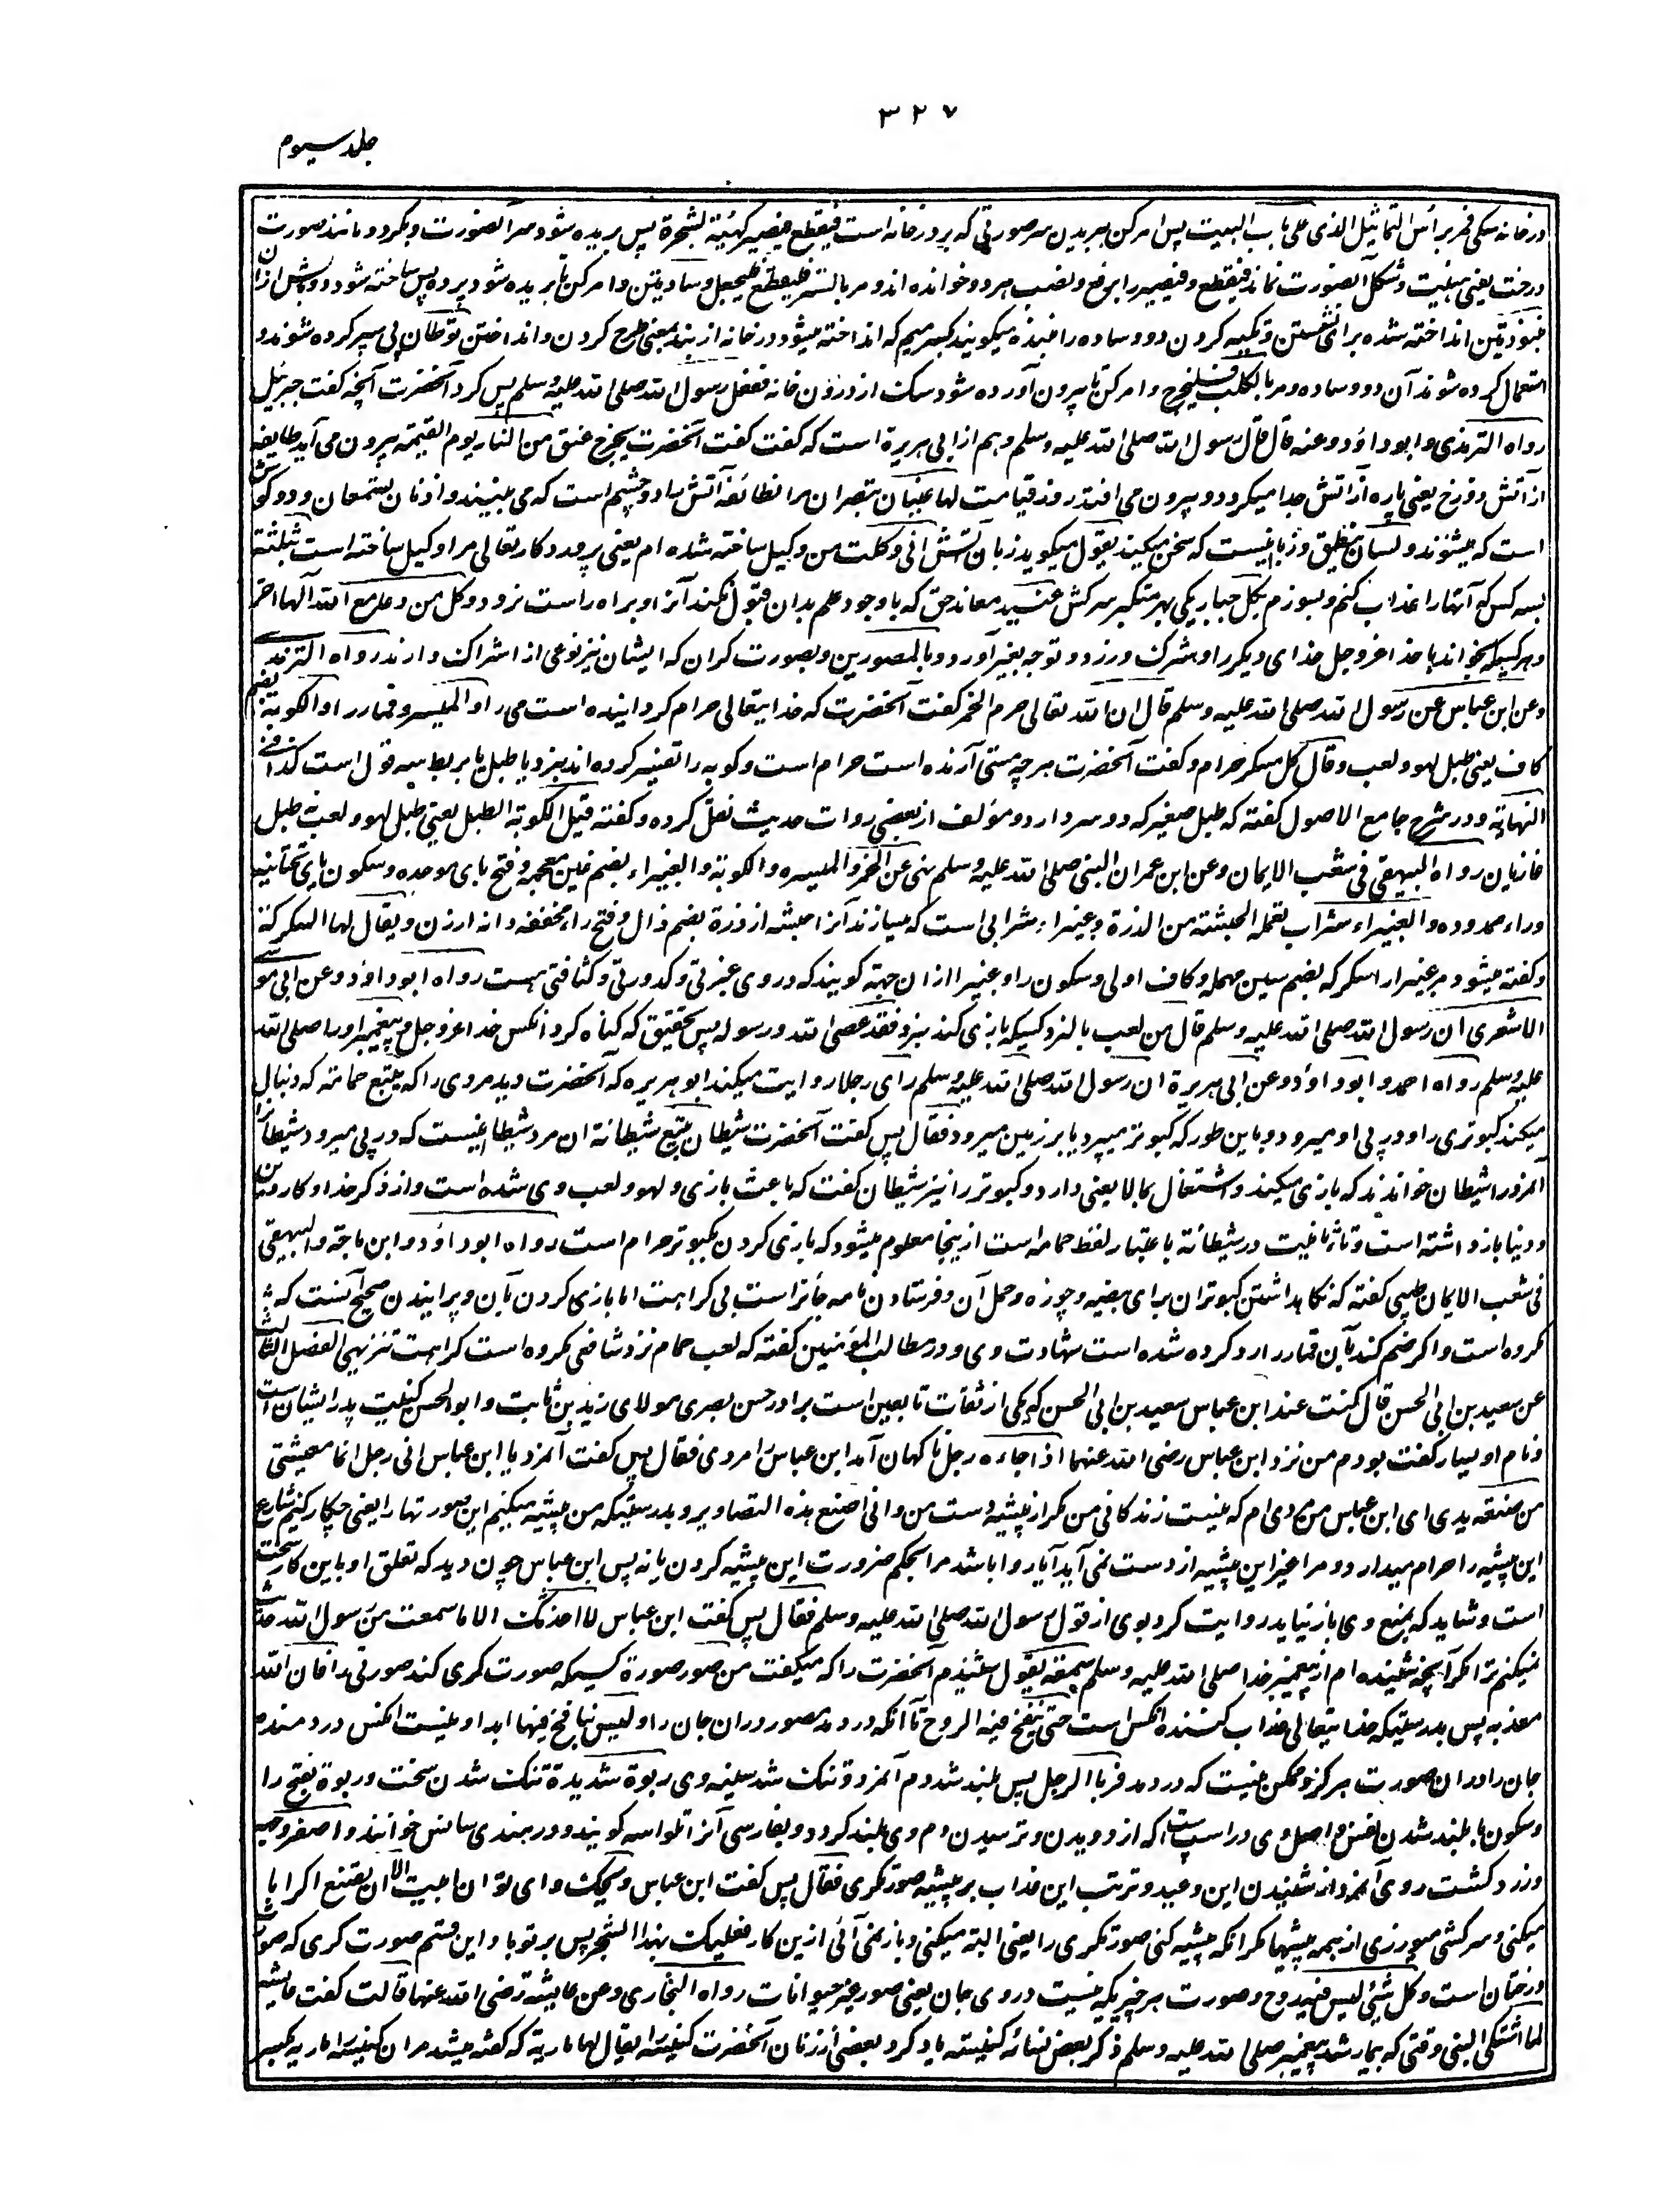 ۳۲۷
جلد سیوم
در خانه سکی فمر براس التماثیل الذی علی باب البیت پس امر کن ببریدن سر صورتی که بر در خانه است فیقطع فیصیر کهیئة الشجرة پس بریده شود سر آنصورت و بکردد مانند صورت
درخت یعنی هیئت و شکل آنصورت نماند فیقطع و فیصیر را برفع و نصب هر دو خوانده اند و مر بالستر فلیقطع فلیجعل وسادتین و امر کن تا بریده شود پرده پس ساخته شود دو بالش ازان
منبوذتین انداخته شده برای نشستن و تکیه کردن دو وساده را منبذه میکویند بکسر میم که انداخته میشود در خانه از نبذ بمعنی طرح کردن و انداختن توطأن پی سپر کرده شوند و
استعمال کرده شوند آن دو وساده و مر بالکلب فلیخرج و امر کن تا بیرون آورده شود سک از درون خانه ففعل رسول الله صلی الله علیه وسلم پس کرد آنحضرت آنچه کفت جبرئیل
رواه الترمذی و ابو داؤد و عنه قال قال رسول الله صلی الله علیه وسلم و هم از ابی هریرة است که کفت کفت آنحضرت یخرج عنق من النار یوم القیمة بیرون می آید طایفه
از آتش دوزخ یعنی پاره از آتش جدا میکردد و بیرون می افتد روز قیامت لها عینان تبصران مر انطائفه آتش را دو چشم است که می بینند و اذنان یسمعان و دو کوش
است که میشنوند و لسان ینطق و زبانیست که سخن میکند یقول میکوید زبان آتش انی وکلت من وکیل ساخته شده ام یعنی پروردکار تعالی مرا وکیل ساخته است بثلثة
بسه کس که آنها را عذاب کنم و بسوزم بکل جبار یکی بهر متکبر سرکش عنید معاند حق که با وجود علم بدان قبول نکند آنرا و براه راست نرود و کل من دعا مع الله آلها اخر
و هر کسیکه بخواند با خدا عز وجل خدای دیکر را و شرک ورزد و توجه بغیر آورد و بالمصورین و بصورت کران که ایشان نیز نوعی از اشراک دارند رواه الترمذی
و عن ابن عباس عن رسول الله صلی الله علیه وسلم قال ان الله تعالی حرم الخمر کفت آنحضرت که خدایتعالی حرام کردانیده است می را و المیسر و قمار را و الکوبة بضم
کاف یعنی طبل لهو و لعب و قال کل مسکر حرام و کفت آنحضرت هر چه مستی آرنده است حرام است و کوبه را تفسیر کرده اند بنرد یا طبل یا بربط سه قول است کذا فی
النهایة و در شرح جامع الاصول کفته که طبل صغیر که دو سر دارد و مؤلف از بعضی روات حدیث نقل کرده و کفته قیل الکوبة الطبل یعنی طبل لهو و لعب نه طبل
غازیان رواه البیهقی فی شعب الایمان و عن ابن عمر ان النبی صلی الله علیه وسلم نهی عن الخمر و المیسر و الکوبة و الغبیراء بضم غین معجمه و فتح بای موحده و سکون یای تحتانیه
و راء ممدوده و الغبیراء شراب تعمله الحبشة من الذرة و غبیراء شرابی است که میسازند آنرا حبشه از ذرة بضم ذال و فتح راء مخففه دانه ارزن و یقال لها السکرکة
و کفته میشود مر غبیرا را سکرکه بضم سین مهمله و کاف اولی و سکون راء و غبیرا ازان جهة کویند که در وی غبرتی و کدورتی و کثافتی هست رواه ابو داؤد و عن ابی موسی
الاشعری ان رسول الله صلی الله علیه وسلم قال من لعب بالنرد کسیکه بازی کند بنرد فقد عصی الله و رسوله پس بتحقیق که کناه کرد آنکس خدا عز وجل و پیغمبر او را صلی الله
علیه وسلم رواه احمد و ابو داؤد و عن ابی هریرة ان رسول الله صلی الله علیه وسلم رای رجلا روایت میکند ابو هریره که آنحضرت دید مردی را که یتبع حمامته که دنبال
میکند کبوتری را و در پی او میرود و باین طور که کبوتر میپرد یا بر زمین میرود فقال پس کفت آنحضرت شیطان یتبع شیطانة ان مرد شیطانیست که در پی میرود شیطانی را
آنمرد را شیطان خواندند که بازی میکند و اشتغال بمالا یعنی دارد و کبوتر را نیز شیطان کفت که باعث بازی و لهو و لعب وی شده است و از ذکر خدا و کار دین
و دنیا باز داشته است و تانیث در شیطانة باعتبار لفظ حمامه است ازینجا معلوم میشود که بازی کردن بکبوتر حرام است رواه ابو داؤد و ابن ماجة و البیهقی
فی شعب الایمان طیبی کفته که نکاهداشتن کبوتران برای بیضه و چوزه و حمل آن و فرستادن نامه جائز است بی کراهت اما بازی کردن بآن و پرانیدن صحیح آنست که
مکروه است و اکر ضم کند بآن قمار را رد کرده شده است شهادت وی و در مطالب المؤمنین کفته که لعب حمام نزد شافعی مکروه است کراهت تنزیهی الفصل الثالث
عن سعید بن ابی الحسن قال کنت عند ابن عباس سعید بن ابی الحسن که یکی از ثقات تابعین است برادر حسن بصری مولای زید بن ثابت و ابو الحسن کنیت پدر ایشان است
و نام او یسار کفت بودم من نزد ابن عباس رضی الله عنهما اذ جاءه رجل ناکهان آمد ابن عباس را مردی فقال پس کفت آنمرد یا ابن عباس انی رجل انما معیشتی
من صنعة یدی ای ابن عباس من مردی ام که نیست زندکانی من مکر از پیشه دست من و انی اصنع هذه التصاویر و بدرستیکه من پیشه میکنم این صورتها را یعنی چکار کنم شارع
این پیشه را حرام میدارد و مرا غیر این پیشه از دست نمی آید آیا روا باشد مرا بحکم ضرورت این پیشه کردن یا نه پس ابن عباس چون دید که تعلق او باین کار سخت
است و شاید که بمنع وی باز نیاید روایت کرد بوی از قول رسول الله صلی الله علیه وسلم فقال پس کفت ابن عباس لا احدثک الا ما سمعت من رسول الله حدیث
نمیکنم ترا مکر آنچه شنیده ام از پیغمبر خدا صلی الله علیه وسلم سمعته یقول شنیدم آنحضرت را که میکفت من صور صورة کسیکه صورت کری کند صورتی را فان الله
معذبه پس بدرستیکه خدایتعالی عذاب کننده آنکس است حتی ینفخ فیه الروح تا آنکه در دمد مصور دران جان را و لیس بنافخ فیها ابدا و نیست آنکس در دمنده
جان را دران صورت هرکز و ممکن نیست که در دمد فربا الرجل پس بلند شد دم آنمرد و تنک شد سینه وی ربوة شدیدة تنک شدن سخت و ربوة بفتح را
و سکون با بلند شدن نفس و اصل وی در اسپ است که از دویدن و ترسیدن دم وی بلند کردد و بفارسی آنرا تلواسه کویند و در هندی سانس خوانند و اصفر وجهه
و زرد کشت روی آنمرد از شنیدن این وعید و ترتب این عذاب بر پیشه صورتکری فقال پس کفت ابن عباس ویحک وای تو ان ابیت الا ان تصنع اکر ابا
میکنی و سرکشی میورزی از همه پیشها مکر آنکه پیشه کنی صورتکری را یعنی البته میکنی و باز نمی آئی ازین کار فعلیک بهذا الشجر پس بر تو باد این قسم صورت کری که صورت
درختان است و کل شیٔ لیس فیه روح و صورت هر چیزیکه نیست در وی جان یعنی صور غیر حیوانات رواه البخاری و عن عایشة رضی الله عنها قالت کفت عایشه
لما اشتکی النبی وقتی که بیمار شد پیغمبر صلی الله علیه وسلم ذکر بعض نسائه کنیسة یاد کرد بعضی از زنان آنحضرت کنیسه را یقال لها ماریة که کفته میشد مر ان کنیسه را ماریه بکسر